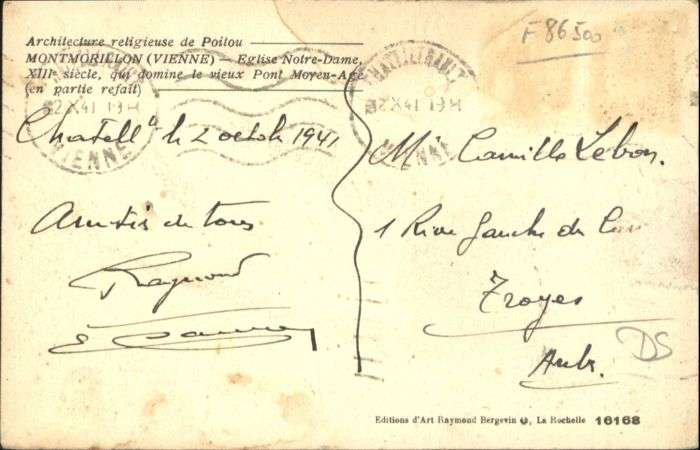 Architecture religieuse de Poitou
MONTMORILLON (VIENNE) — Eglise Notre-Dame,
XIIIe siècle, qui domine le vieux Pont Moyen-Age
(en partie refait)
F 86500
CHATELLERAULT
2 X 41 19H
VIENNE
2 X 41 19H
VIENNE
Chatellt le 2 octob 1941
Amitiés de tous
Raymond
Mr Camille Lebon.
1 Rive Gauche du
Troyes
Aube.
DS
Editions d'Art Raymond Bergevin, La Rochelle 16168